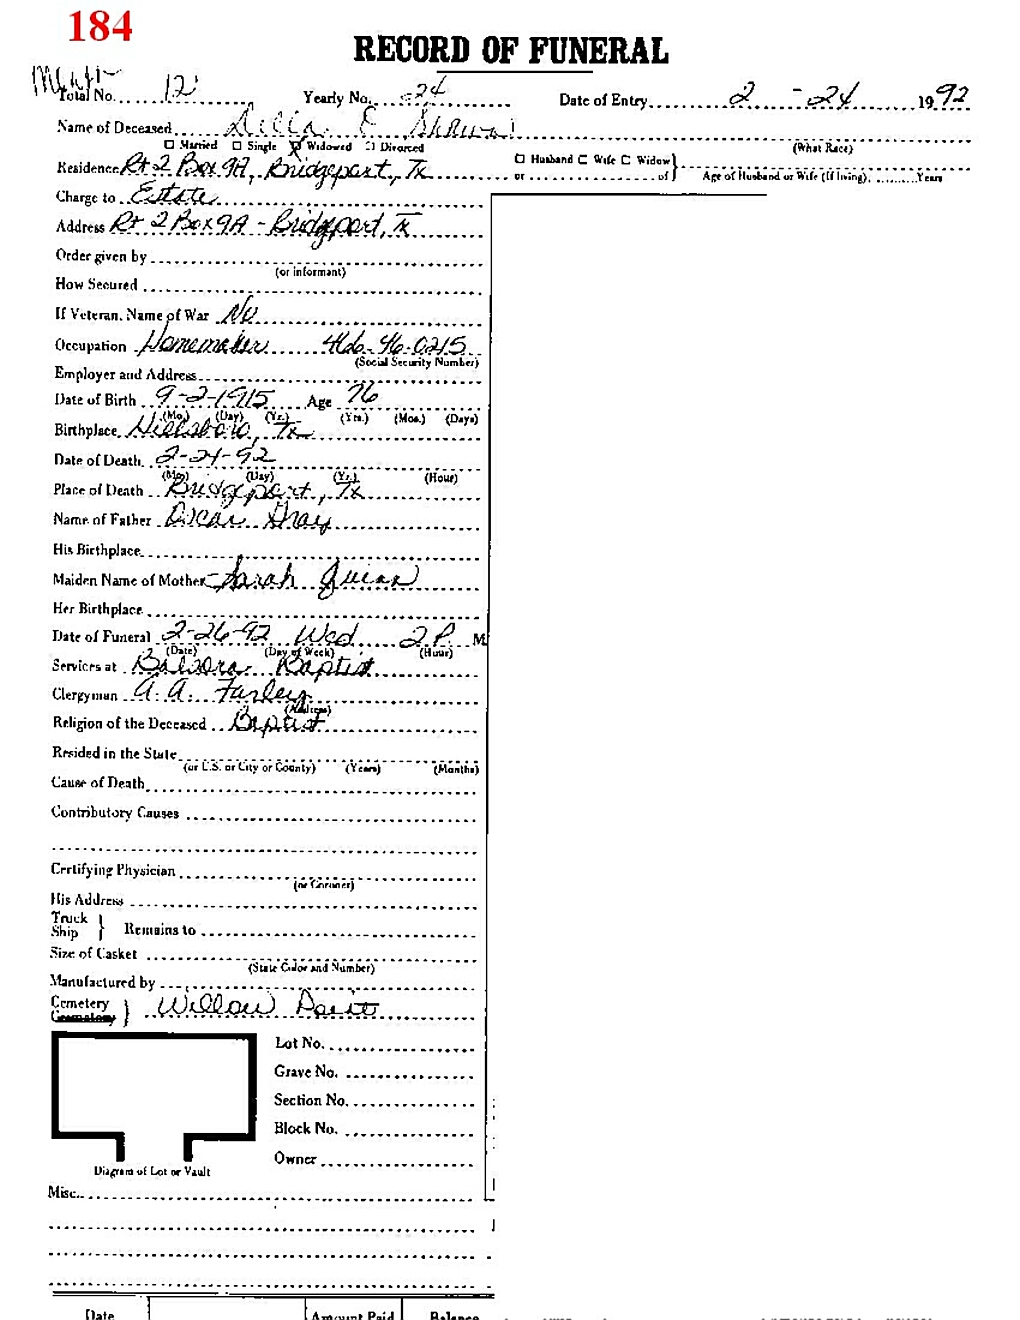 184
RECORD OF FUNERAL
Total No. 12 Yearly No. 24 Date of Entry 2 - 24 1992
Name of Deceased
(What Race)
Married Single Widowed Divorced
Residence Rt 2 Box 9A, Bridgeport, Tx Husband Wife Widow or of Age of Husband or Wife (if living) Years
Charge to Estate
Address Rt 2 Box 9A - Bridgeport, Tx
Order given by
(or informant)
How Secured
If Veteran, Name of War No
Occupation Homemaker 466-46-0215
(Social Security Number)
Employer and Address
Date of Birth 9-2-1915 Age 76
(Mo.) (Day) (Yr.) (Yrs.) (Mos.) (Days)
Birthplace Hillsboro, Tx
Date of Death 2-24-92
(Mo) (Day) (Yr.) (Hour)
Place of Death Bridgeport, Tx
Name of Father Oscar Gray
His Birthplace
Maiden Name of Mother Sarah Quinn
Her Birthplace
Date of Funeral 2-26-92 Wed 2 P. M
(Date) (Day of Week) (Hour)
Services at Balsora Baptist
Clergyman A. A. Farley
(Address)
Religion of the Deceased Baptist
Resided in the State
(or U.S. or City or County) (Years) (Months)
Cause of Death
Contributory Causes
Certifying Physician
(or Coroner)
His Address
Truck
Ship } Remains to
Size of Casket
(State Color and Number)
Manufactured by
Cemetery
Crematory } Willow Point
Lot No.
Grave No.
Section No.
Block No.
Owner
Diagram of Lot or Vault
Misc.
Date Amount Paid Balance